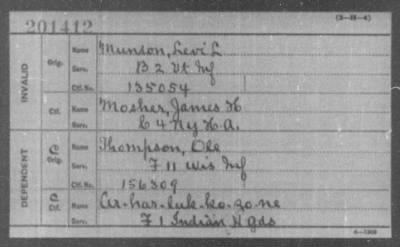 201412
(3—III—4)
INVALID
Orig.
Name Munson, Levi L
Serv. B 2 Vt Inf
Ctf. No. 135054
Ctf.
Name Mosher, James H
Serv. C 4 Ny H.A.
DEPENDENT
C
Orig.
Name Thompson, Ole
Serv. F 11 Wis Inf
Ctf. No. 156309
C
Ctf.
Name Ar-har-luk-ko-go-ne
Serv. F 1 Indian H gds